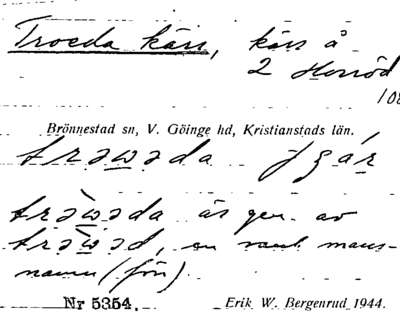 Troeda kärr, kärr å
2 Horröd
108
Brönnestad sn, V. Göinge hd, Kristianstads län.
trəwəda
trəwəda är gen. av
trəwəd, en mans-
namn (förr).
Nr 5354. Erik W. Bergenrud 1944.